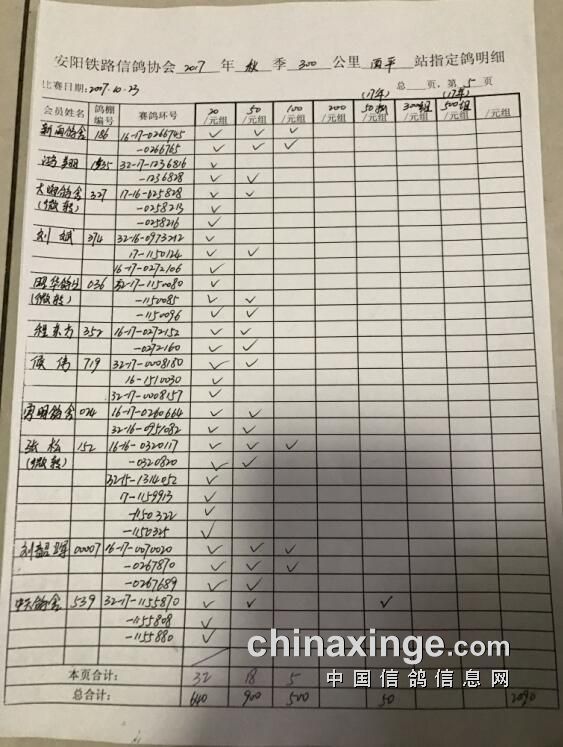 安阳铁路信鸽协会 2017 年 秋 季 300 公里 西平 站指定鸽明细
比赛日期: 2007.10.23 总 页. 第 5 页
(17年) (17年)
会员姓名 鸽棚编号 赛鸽环号 20/元组 50/元组 100/元组 200/元组 50 /元组 300组/元组 500组/元组 /元组
186 16-17-0266745 ✓ ✓ ✓
-0266765 ✓ ✓ ✓
32-17-1236816 ✓
-1236828 ✓ ✓
327 17-16-025828 ✓ ✓
-0258213 ✓
-0258216 ✓
刘斌 374 32-16-0973242 ✓
17-1150124 ✓ ✓
16-17-0272106 ✓
036 32-17-1150080 ✓
-1150085 ✓ ✓
-1150096 ✓ ✓
程东方 352 16-17-0272152 ✓ ✓
-0272160 ✓ ✓
侯伟 719 32-17-0008180 ✓ ✓
16-1510030 ✓
32-17-0008157 ✓
024 16-17-0260664 ✓ ✓
32-16-0951082 ✓ ✓
张松 152 16-16-0320117 ✓ ✓ ✓
-0320820 ✓ ✓
32-15-1314052 ✓
17-1159913 ✓
-1150322 ✓
-1150325 ✓
00007 16-17-0070020 ✓ ✓ ✓
-0267870 ✓ ✓ ✓
-0267689 ✓ ✓
539 32-17-1155870 ✓ ✓ ✓
-1155808 ✓
-1155880 ✓
本页合计: 32 18 5
总合计: 640 900 500 50 2090
chinaxinge.com
中国信鸽信息网